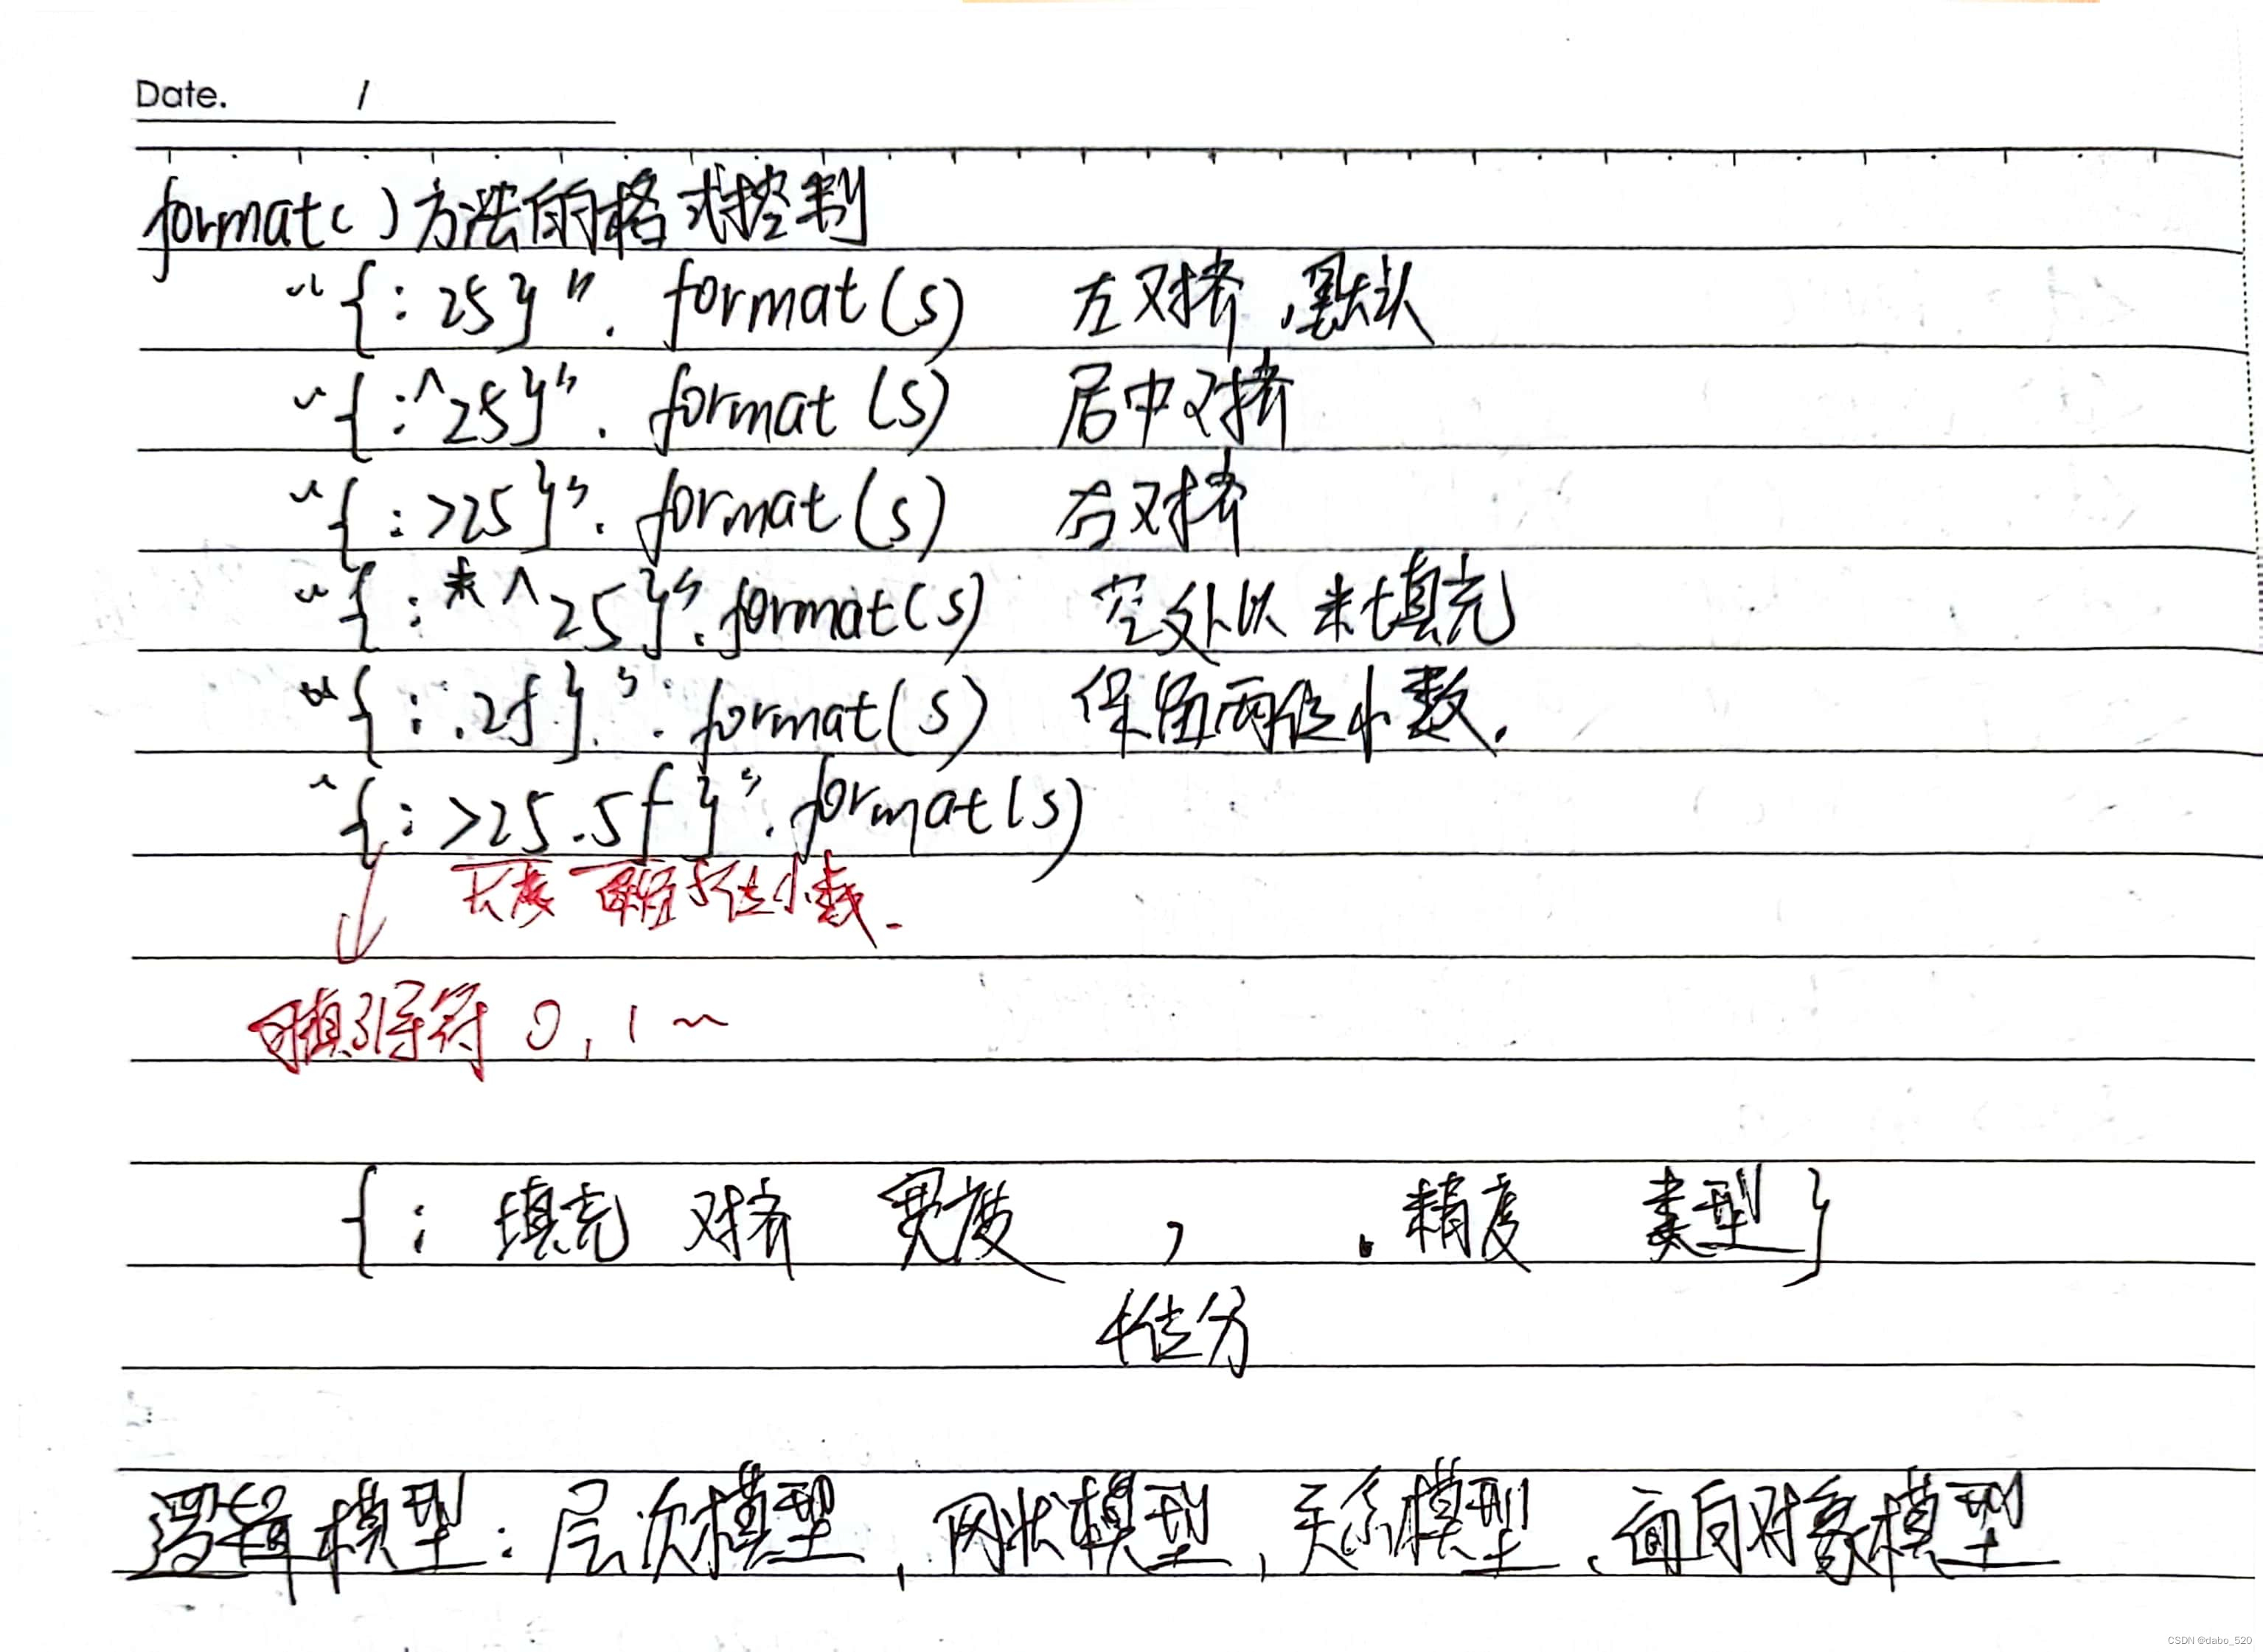 Date. /
format()方法的格式控制
"{:25}".format(s) 左对齐,默认
"{:^25}".format(s) 居中对齐
"{:>25}".format(s) 右对齐
"{:*^25}".format(s) 空处以*填充
"{:.2f}".format(s) 保留两位小数.
"{:>25.5f}".format(s)
长度 保留5位小数.
可填引导符 0,1~
{: 填充 对齐 宽度 , .精度 类型}
千位分
逻辑模型:层次模型,网状模型,关系模型、面向对象模型
CSDN @dabo_520